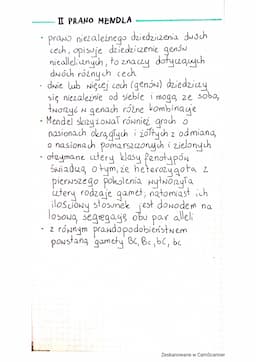 II PRAWO MENDLA
• prawo niezależnego dziedziczenia dwóch
cech, opisuje dziedziczenie genów
nieallelicznych, to znaczy dotyczących
dwóch różnych cech
• dwie lub więcej cech (genów) dziedziczy
się niezależnie od siebie i mogą ze sobą
tworzyć w genach różne kombinacje
• Mendel skrzyżował również groch o
nasionach okrągłych i żółtych z odmianą
o nasionach pomarszczonych i zielonych
• otrzymane cztery klasy fenotypów
świadczą o tym, że heterozygota z
pierwszego pokolenia wytworzyła
cztery rodzaje gamet, natomiast ich
ilościowy stosunek jest dowodem na
losową segregację obu par alleli
• z równym prawdopodobieństwem
powstaną gamety BC, Bc, bC, bc
Zeskanowane w CamScanner